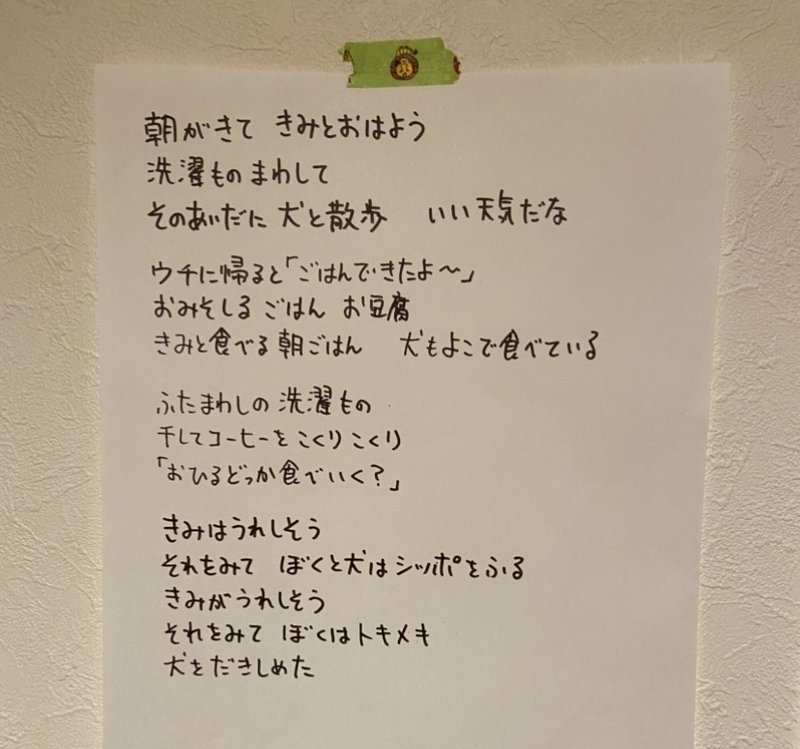 朝がきて きみとおはよう
洗濯もの まわして
そのあいだに 犬と散歩 いい天気だな
ウチに帰ると「ごはんできたよ〜」
おみそしる ごはん お豆腐
きみと食べる 朝ごはん 犬もよこで食べている
ふたまわしの 洗濯もの
干してコーヒーを こくりこくり
「おひるどっか食べいく?」
きみはうれしそう
それをみて ぼくと犬はシッポをふる
きみがうれしそう
それをみて ぼくはトキメキ
犬をだきしめた